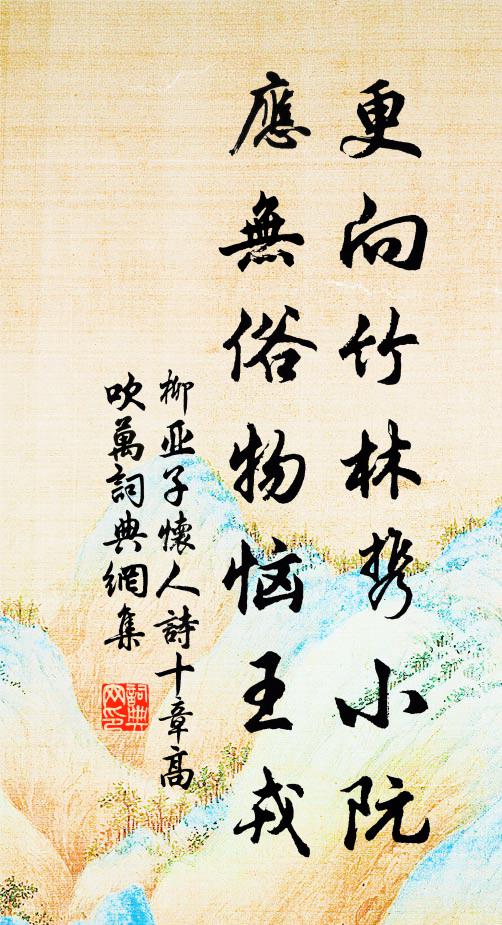 更向竹林携小阮
應無俗物恼王戎
柳亚子懷人詩十章高
吹萬詞典網集
詞典
网印